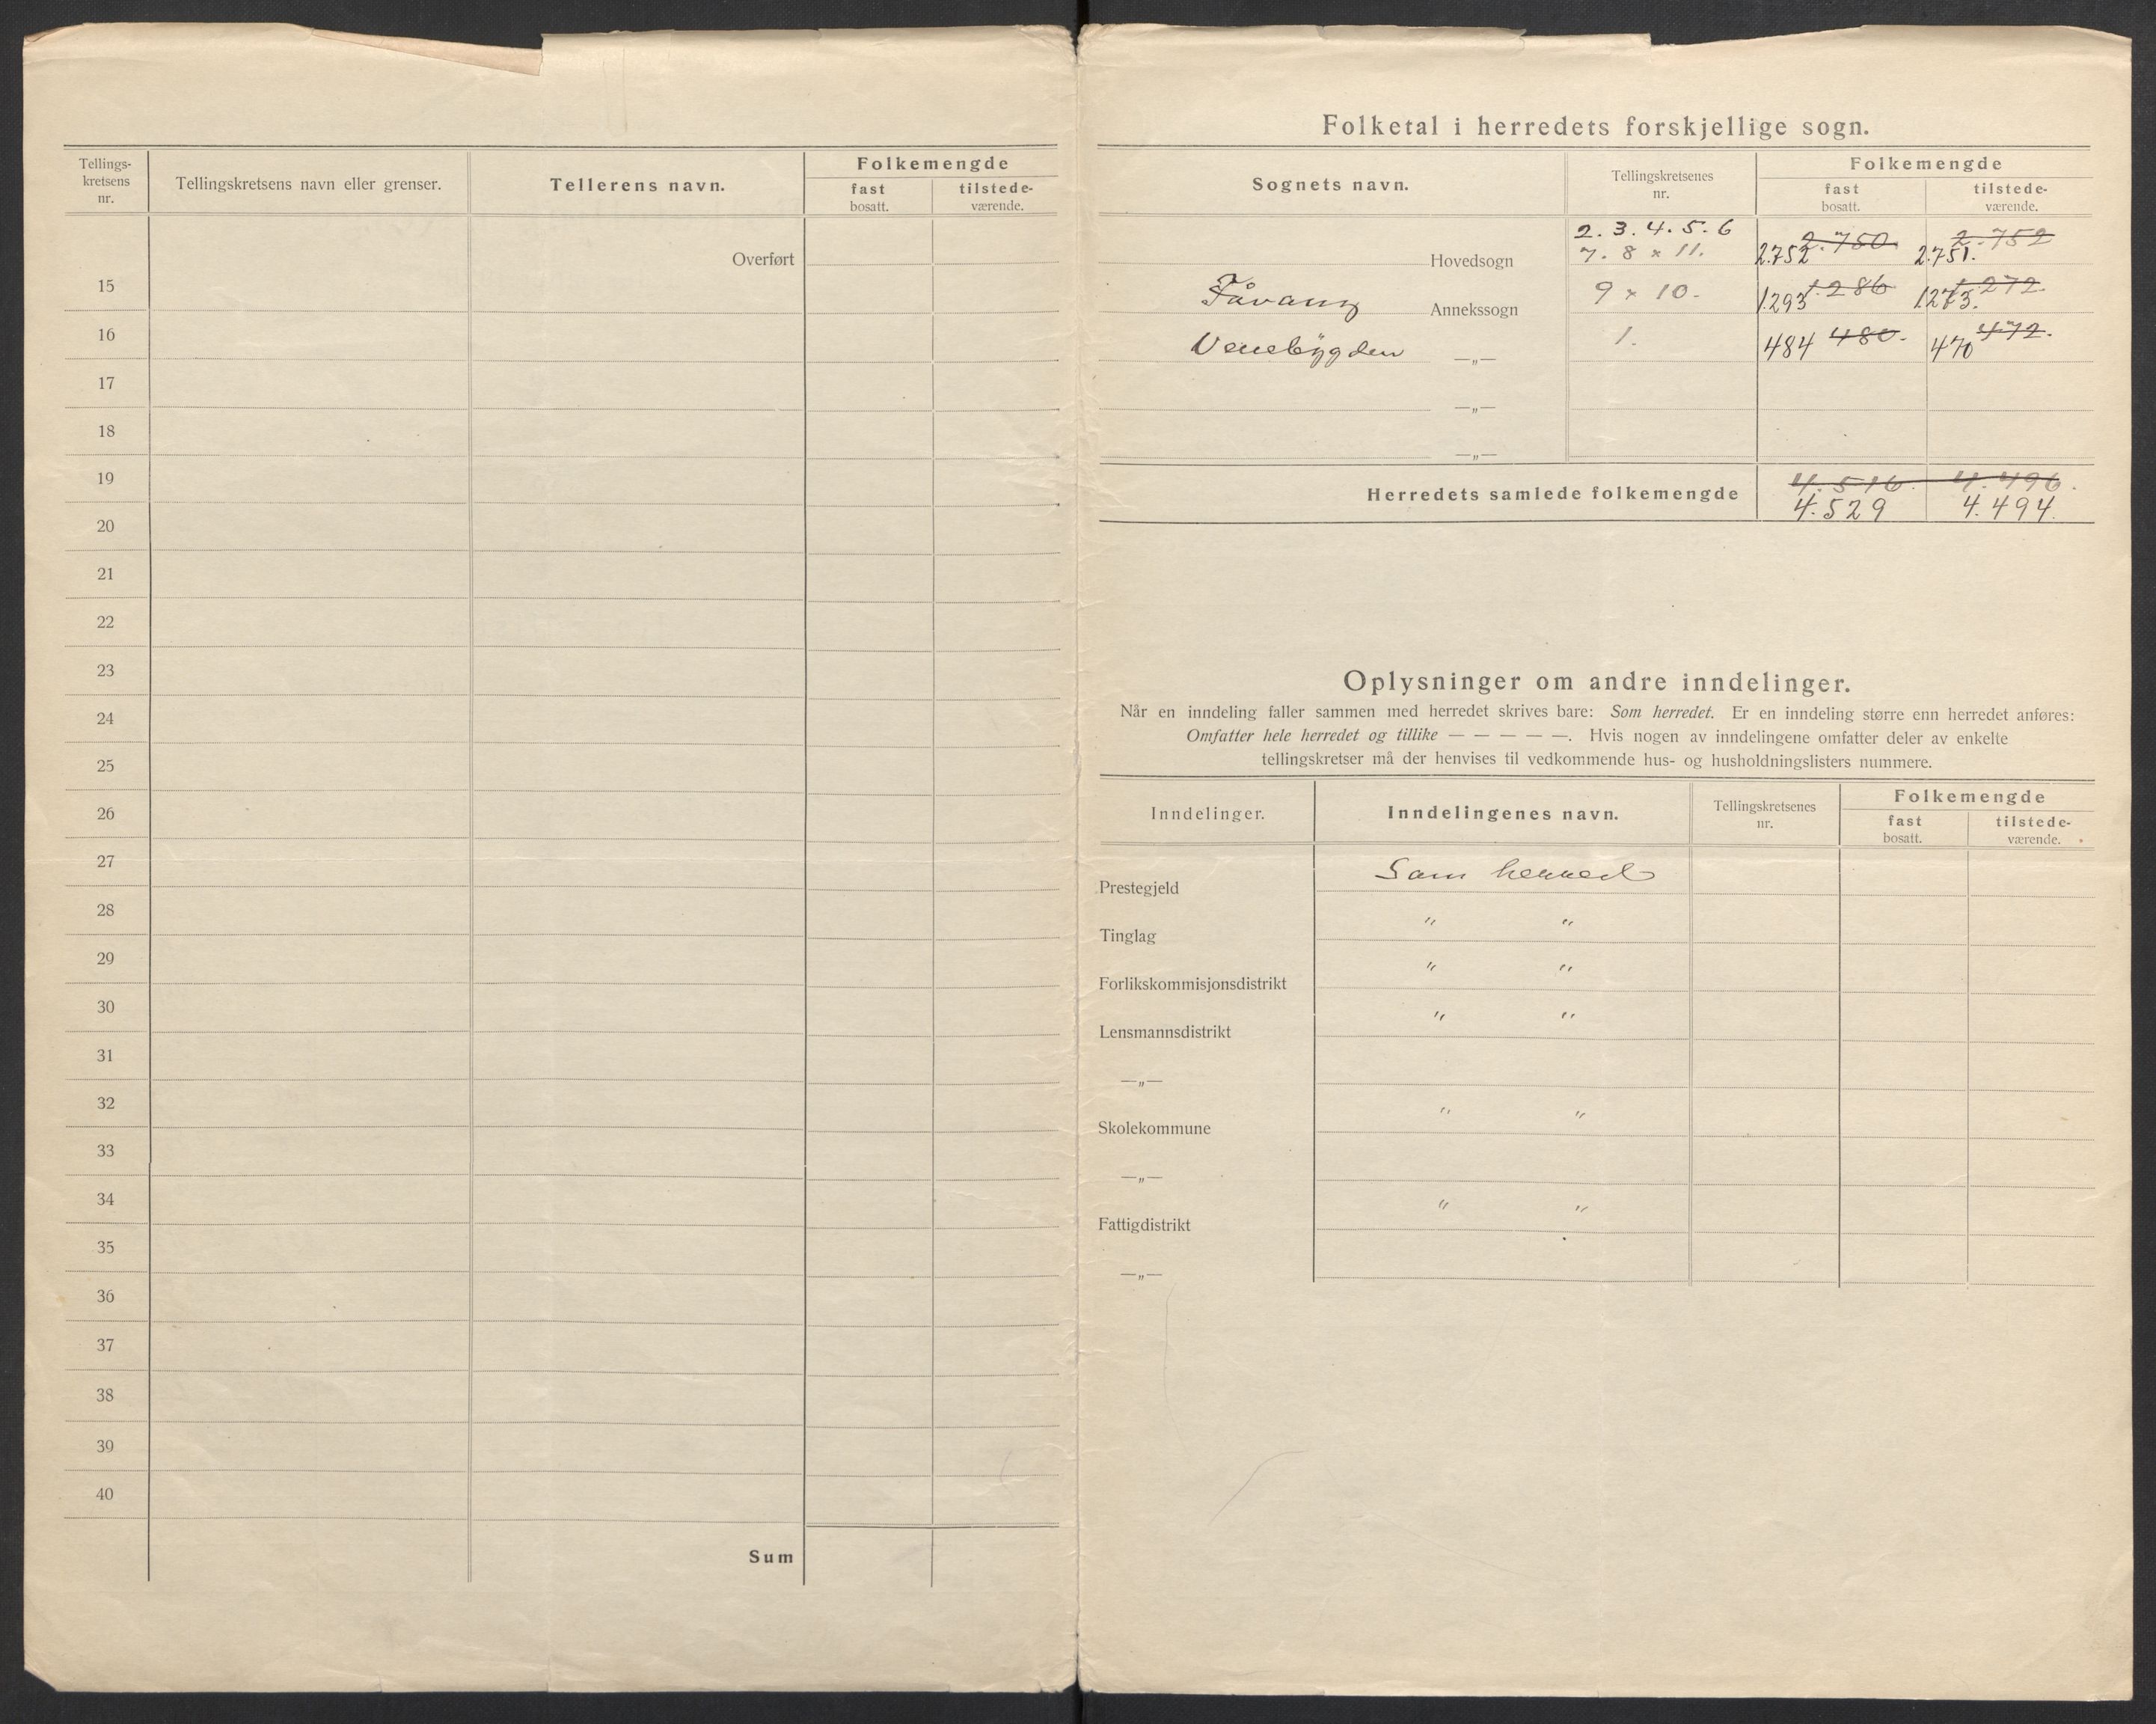 Tellings-
kretsens
nr.
Tellingskretsens navn eller grenser.
Tellerens navn.
Folkemengde
fast
bosatt.
tilstede-
værende.
Overført
15
16
17
18
19
20
21
22
23
24
25
26
27
28
29
30
31
32
33
34
35
36
37
38
39
40
Sum
Folketal i herredets forskjellige sogn.
Sognets navn.
Tellingskretsenes
nr.
Folkemengde
fast
bosatt.
tilstede-
værende.
2. 3. 4. 5. 6
2.750. 2.752
Hovedsogn 7. 8 x 11. 2.752 2.751.
Fåvang Annekssogn 9 x 10. 1.293 1.286 1.273. 1.272.
Venebygden —„— 1. 484 480. 470 472.
—„—
—„—
Herredets samlede folkemengde 4.516. 4.496.
4.529 4.494.
Oplysninger om andre inndelinger.
Når en inndeling faller sammen med herredet skrives bare: Som herredet. Er en inndeling større enn herredet anføres:
Omfatter hele herredet og tillike — — — — —. Hvis nogen av inndelingene omfatter deler av enkelte
tellingskretser må der henvises til vedkommende hus- og husholdningslisters nummere.
Inndelinger.
Inndelingenes navn.
Tellingskretsenes
nr.
Folkemengde
fast
bosatt.
tilstede-
værende.
Prestegjeld Som herred
Tinglag " "
Forlikskommisjonsdistrikt " "
Lensmannsdistrikt " "
—„—
Skolekommune " "
—„—
Fattigdistrikt " "
—„—